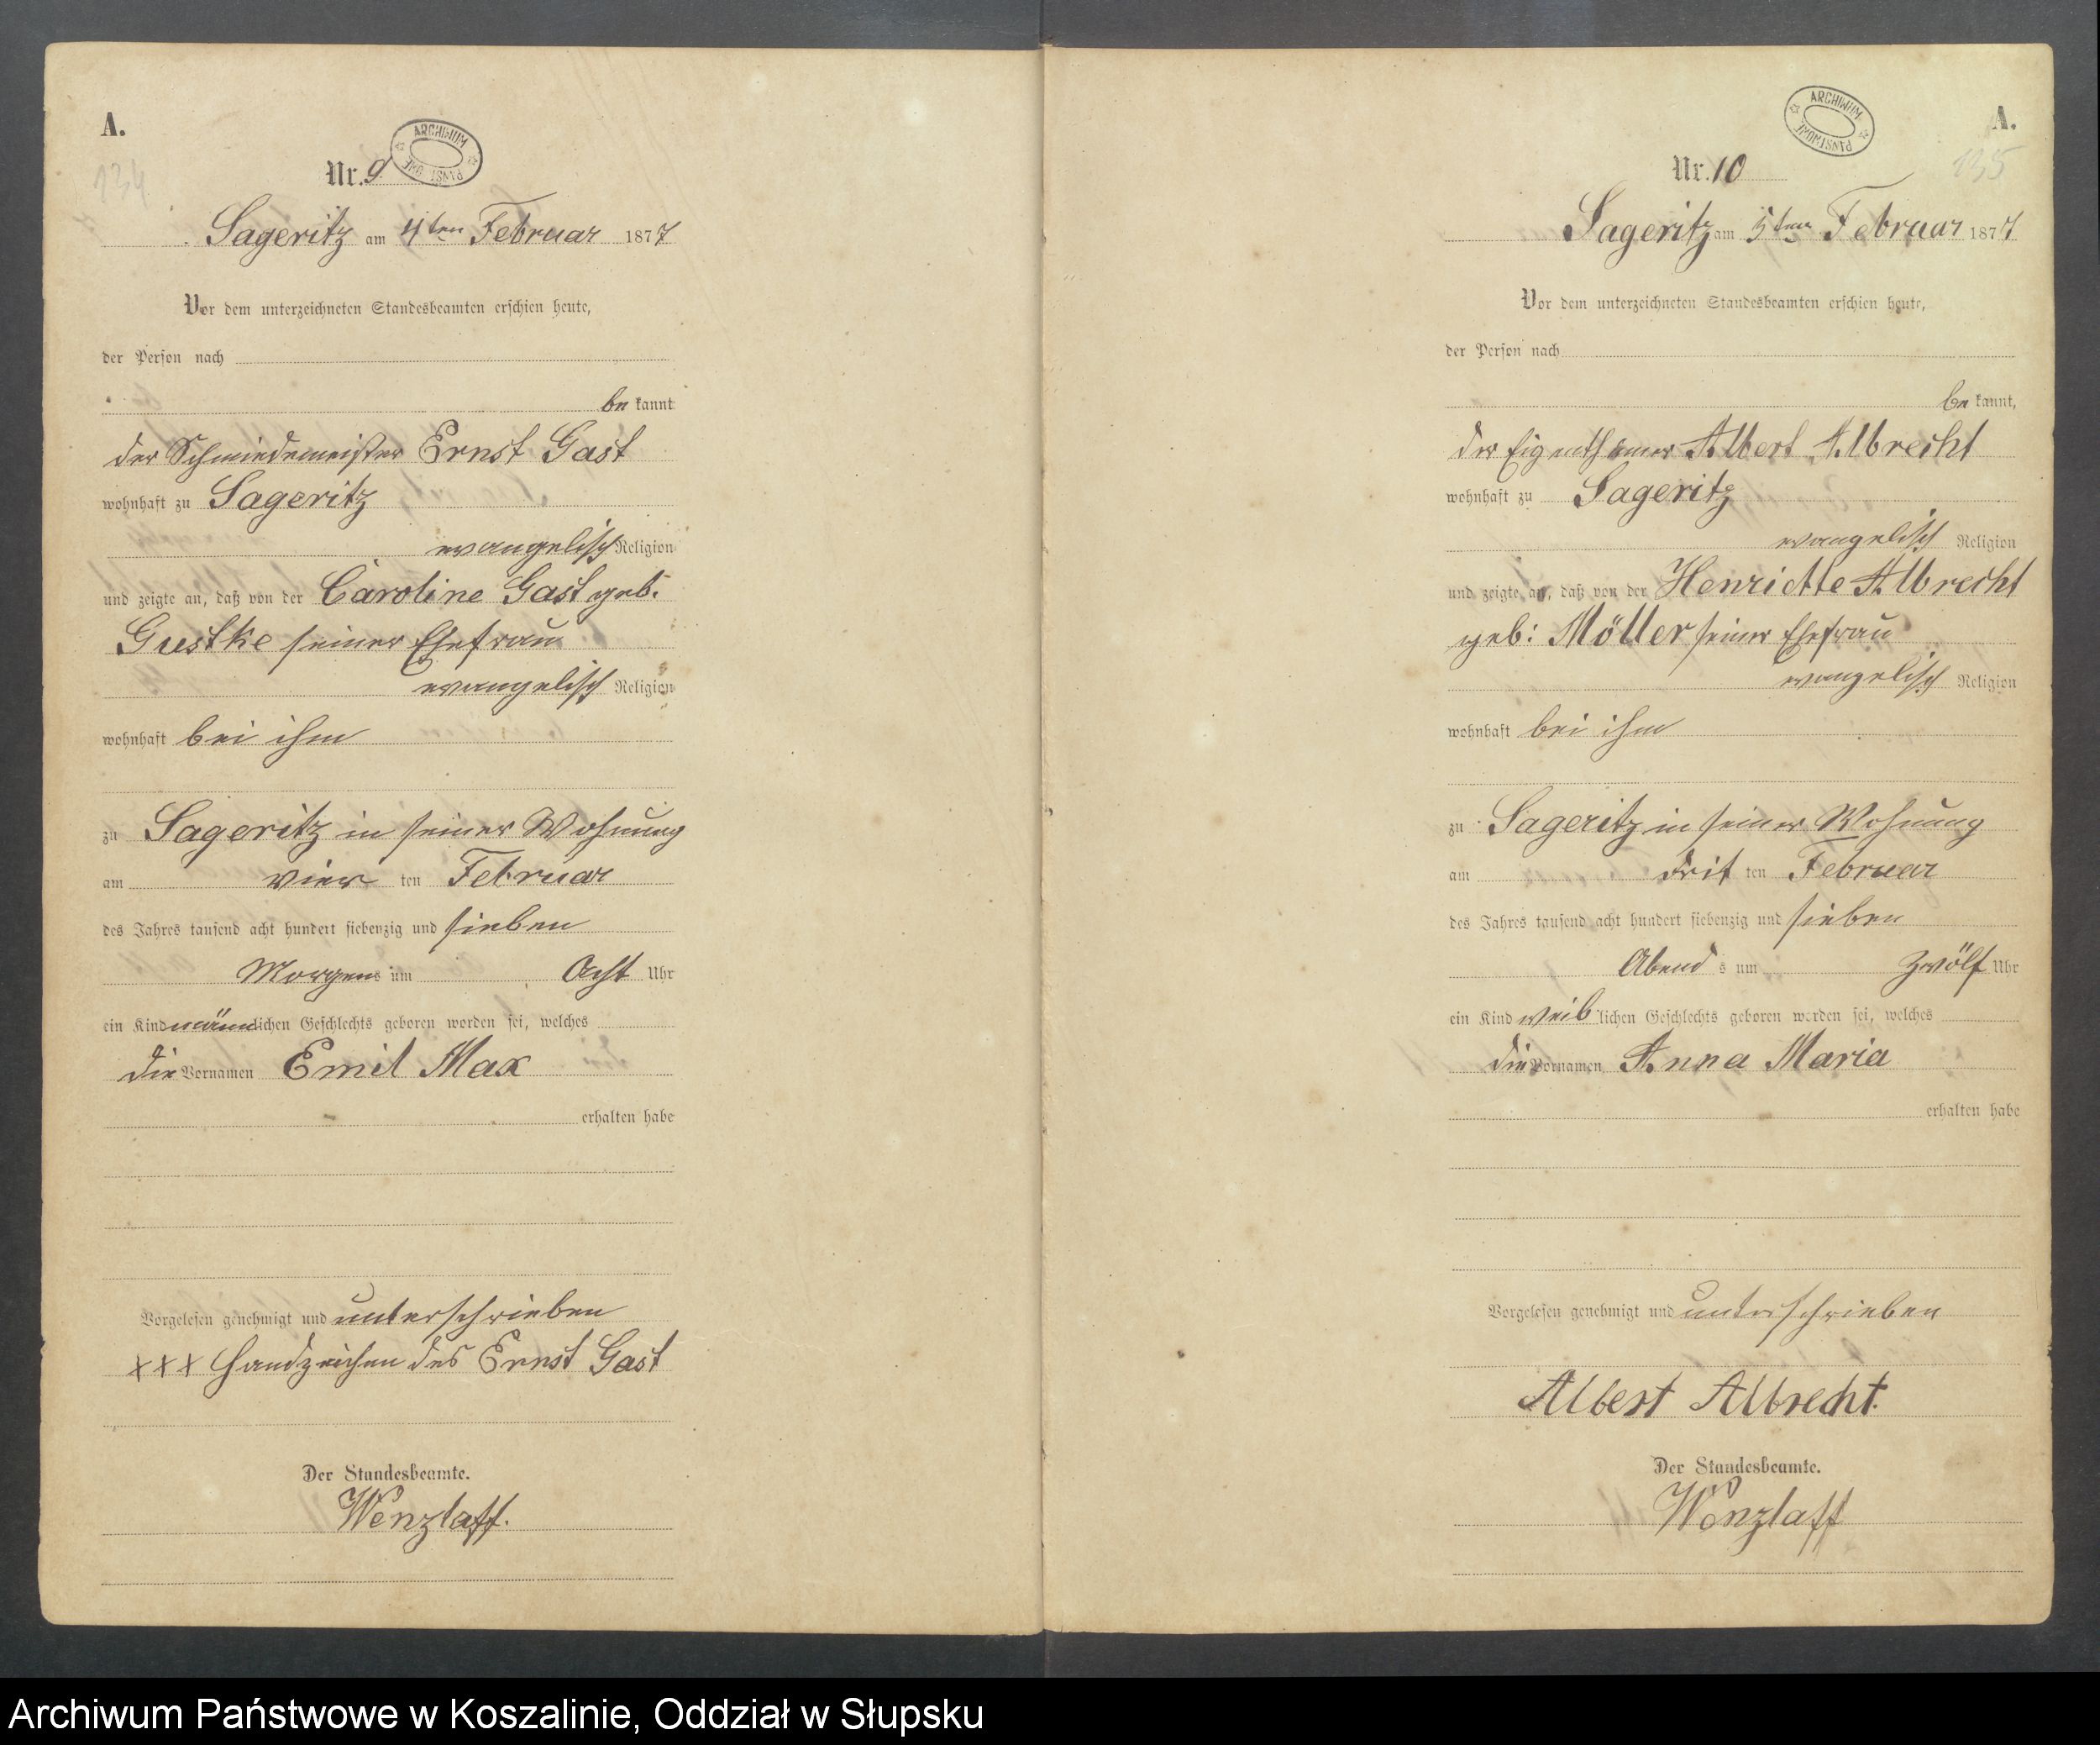 A.
134
Nr. 9
ARCHIWUM PAŃSTWOWE
Sageritz am 4ten Februar 1877
Vor dem unterzeichneten Standesbeamten erschien heute,
der Person nach
be kannt
der Schmiedemeister Ernst Gast
wohnhaft zu Sageritz
evangelisch Religion
und zeigte an, daß von der Caroline Gast geb.
Gustke seiner Ehefrau
evangelisch Religion
wohnhaft bei ihm
zu Sageritz in seiner Wohnung
am vier ten Februar
des Jahres tausend acht hundert siebenzig und sieben
Morgens um Acht Uhr
ein Kind männlichen Geschlechts geboren worden sei, welches
die Vornamen Emil Max
erhalten habe
Vorgelesen genehmigt und unterschrieben
+++ Handzeichen des Ernst Gast
Der Standesbeamte.
Wenzlaff.
A.
135
Nr. 10
ARCHIWUM PAŃSTWOWE
Sageritz am 5ten Februar 1877
Vor dem unterzeichneten Standesbeamten erschien heute,
der Person nach
be kannt,
der Eigenthümer Albert Albrecht
wohnhaft zu Sageritz
evangelisch Religion
und zeigte an, daß von der Henriette Albrecht
geb: Möller seiner Ehefrau
evangelisch Religion
wohnhaft bei ihm
zu Sageritz in seiner Wohnung
am drit ten Februar
des Jahres tausend acht hundert siebenzig und sieben
Abend s um Zwölf Uhr
ein Kind weib lichen Geschlechts geboren worden sei, welches
die Vornamen Anna Maria
erhalten habe
Vorgelesen genehmigt und unterschrieben
Albert Albrecht.
Der Standesbeamte.
Wenzlaff
Archiwum Państwowe w Koszalinie, Oddział w Słupsku